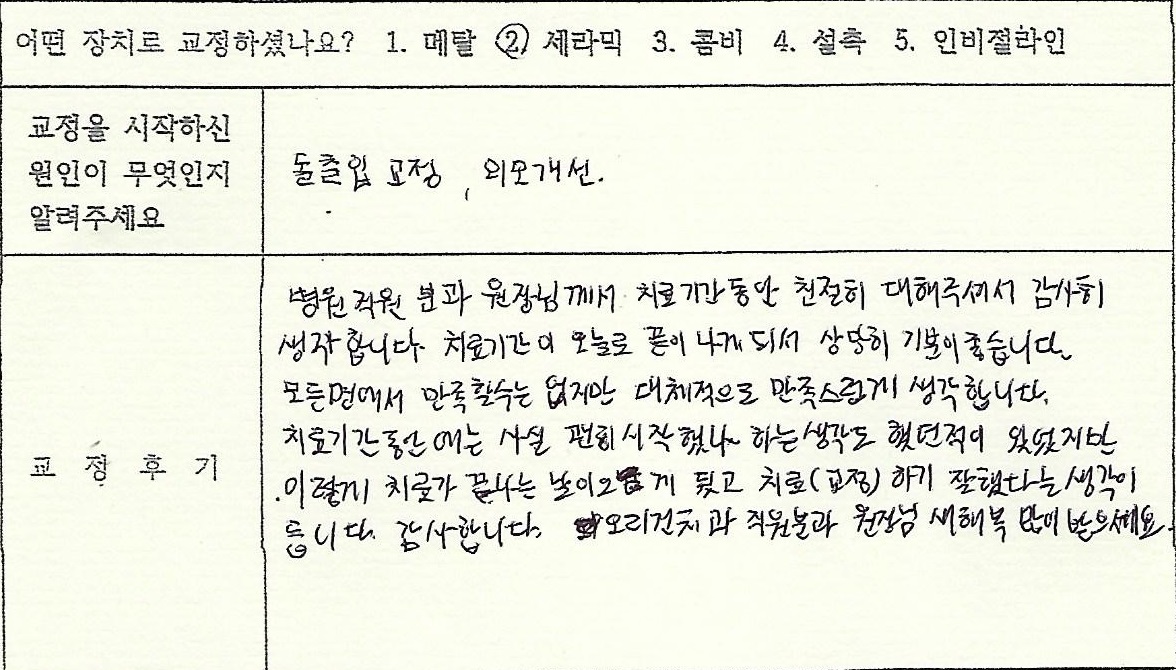 어떤 장치로 교정하셨나요? 1. 메탈 ② 세라믹 3. 콤비 4. 설측 5. 인비절라인
교정을 시작하신
원인이 무엇인지
알려주세요
돌출입 교정, 외모개선.
교 정 후 기
병원 직원 분과 원장님께서 치료기간동안 친절히 대해주셔서 감사히
생각합니다. 치료기간이 오늘로 끝이 나게 되서 상당히 기분이좋습니다.
모든면에서 만족할수는 없지만 대체적으로 만족스럽게 생각합니다.
치료기간동안에는 사실 괜히 시작했나 하는생각도 했던적이 있었지만
이렇게 치료가 끝나는 날이오게 됬고 치료(교정) 하기 잘했다는 생각이
듭니다. 감사합니다. 오리건치과 직원분과 원장님 새해복 많이 받으세요.